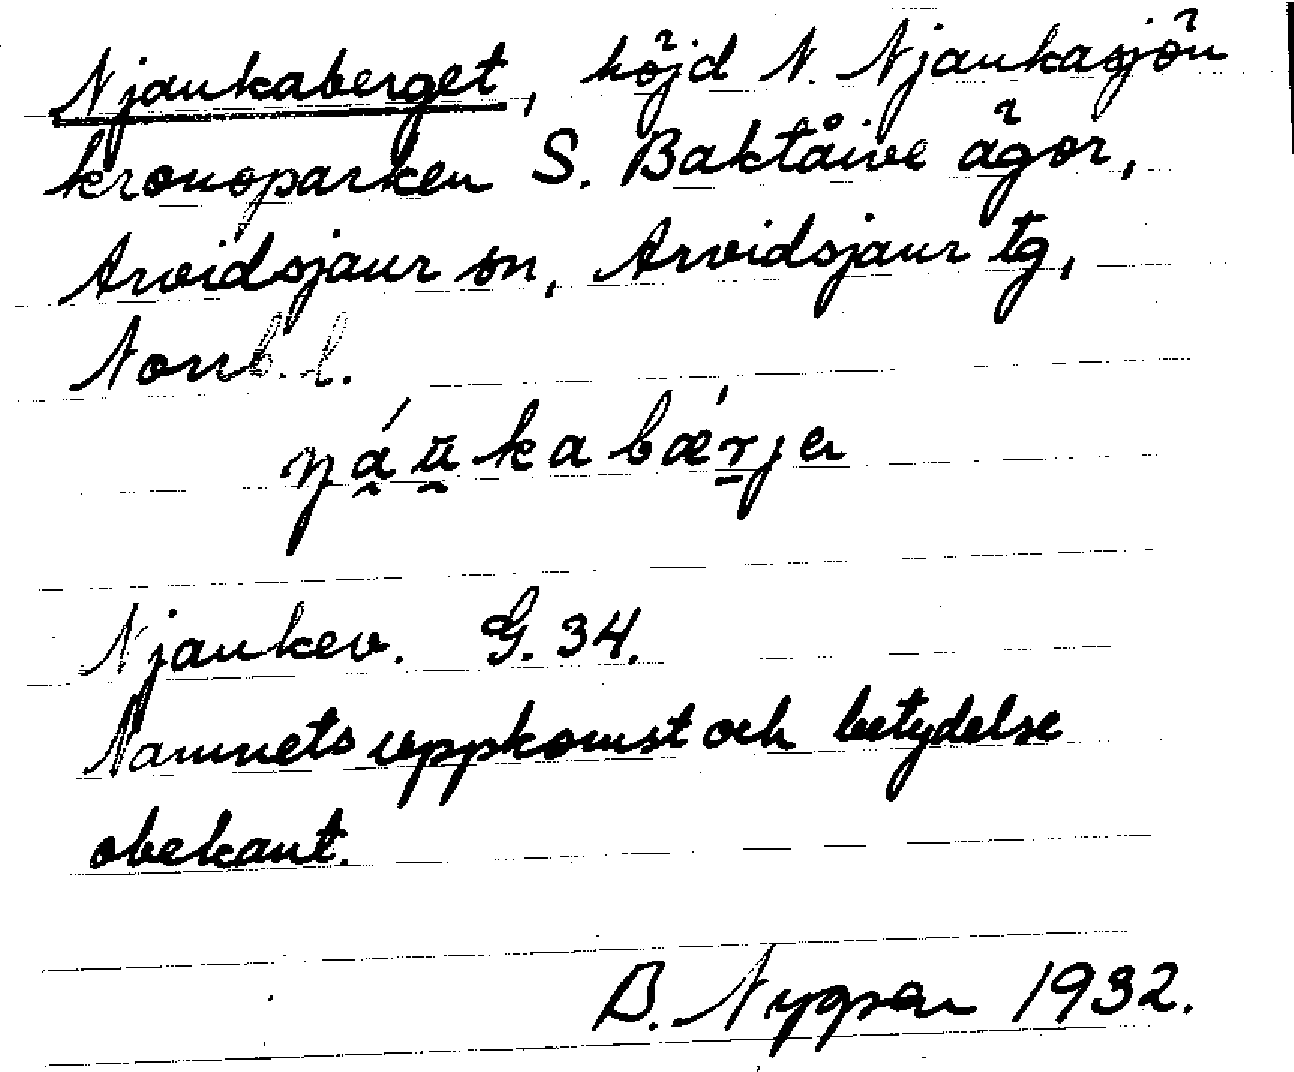 Njaukaberget, höjd N. Njaukasjön
kronoparken S. Baktåive ägor,
Arvidsjaur sn, Arvidsjaur tg,
Norrb. l.
Njaukev. G. 34.
Namnets uppkomst och betydelse
obekant.
B. 1932.